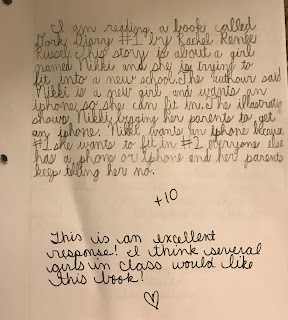 I am reading a book called
Dork Diary #1 by Rachel Renée
Russel. This story is about a girl
named Nikki and she is trying to
fit into a new school. The authour said
Nikki is a new girl and wants an
iphone so she can fit in. The illustratio
shows Nikki begging her parents to get
an iphone. Nikki wants an iphone because
#1 she wants to fit in #2 everyone else
has a phone or iphone and her parents
keep telling her no.
+10
This is an excellent
response! I think several
girls in class would like
this book!